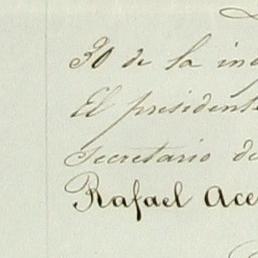 30 de la in
El president
Secretario de
Rafael Ace